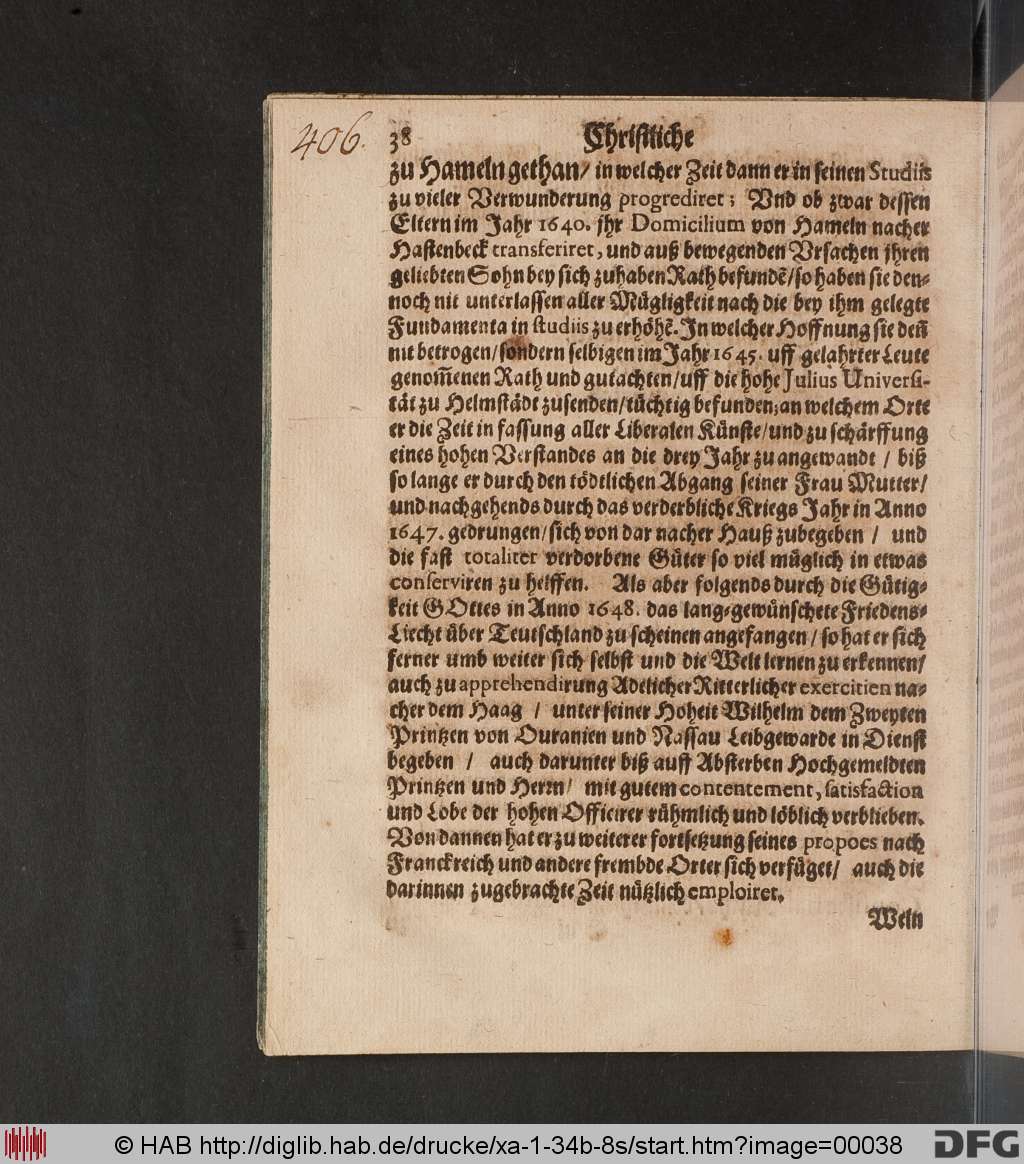 406.
38 Christliche
zu Hameln gethan/ in welcher Zeit dann er in seinen Studiis
zu vieler Verwunderung progrediret; Vnd ob zwar dessen
Eltern im Jahr 1640. jhr Domicilium von Hameln nacher
Hastenbeck transferiret, und auß bewegenden Vrsachen jhren
geliebten Sohn bey sich zuhaben Rath befundē/ so haben sie den-
noch nit unterlassen aller Mügligkeit nach die bey ihm gelegte
Fundamenta in studiis zu erhöhē. In welcher Hoffnung sie deñ
nit betrogen/ sondern selbigen im Jahr 1645. uff gelahrter Leute
genom̃enen Rath und gutachten/ uff die hohe Julius Universi-
tät zu Helmstädt zusenden/ tüchtig befunden; an welchem Orte
er die Zeit in fassung aller Liberalen Künste/ und zu schärffung
eines hohen Verstandes an die drey Jahr zu angewandt / biß
so lange er durch den tödtlichen Abgang seiner Frau Mutter/
und nachgehends durch das verderbliche Kriegs Jahr in Anno
1647. gedrungen/ sich von dar nacher Hauß zubegeben / und
die fast totaliter verdorbene Güter so viel müglich in etwas
conserviren zu helffen. Als aber folgends durch die Gütig-
keit GOttes in Anno 1648. das lang-gewünschete Friedens-
Liecht über Teutschland zu scheinen angefangen / so hat er sich
ferner umb weiter sich selbst und die Welt lernen zu erkennen/
auch zu apprehendirung Adelicher Ritterlicher exercitien na-
cher dem Haag / unter seiner Hoheit Wilhelm dem Zweyten
Printzen von Ouranien und Nassau Leibgewarde in Dienst
begeben / auch darunter biß auff Absterben Hochgemeldten
Printzen und Herrn/ mit gutem contentement, satisfaction
und Lobe der hohen Officirer rühmlich und löblich verblieben.
Von dannen hat er zu weiterer fortsetzung seines propoes nach
Franckreich und andere frembde Orter sich verfüget/ auch die
darinnen zugebrachte Zeit nützlich emploiret.
Weln
© HAB http://diglib.hab.de/drucke/xa-1-34b-8s/start.htm?image=00038
DFG